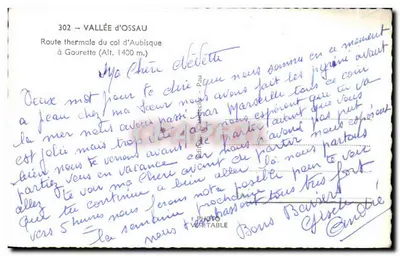 302 - VALLÉE d'OSSAU
Route thermale du col d'Aubisque
à Gourette (Alt. 1400 m.)
Ma Chère dédette
Deux mot pour te dire que nous sommes en ce moment
a peau chez ma Sœur nous avons fait les pyrénées avant
la mer nous avons passé par Marseille tous ce coin
est jolie mais trop de nous espéront que tu va
bien nous te verons avant de partir autant que vous
partiez vous en vacance car nous n'avons pas
allez te voir ma Chère avant de partir nous espéront
que tu continue a bien allez là nous partons
vers 5 heures nous ferons notre posible pour te voir
la semaine prochaine
nous t'embrassont tous très fort
Bons Baisers
Gisèle
André
PHOTO
VERITABLE